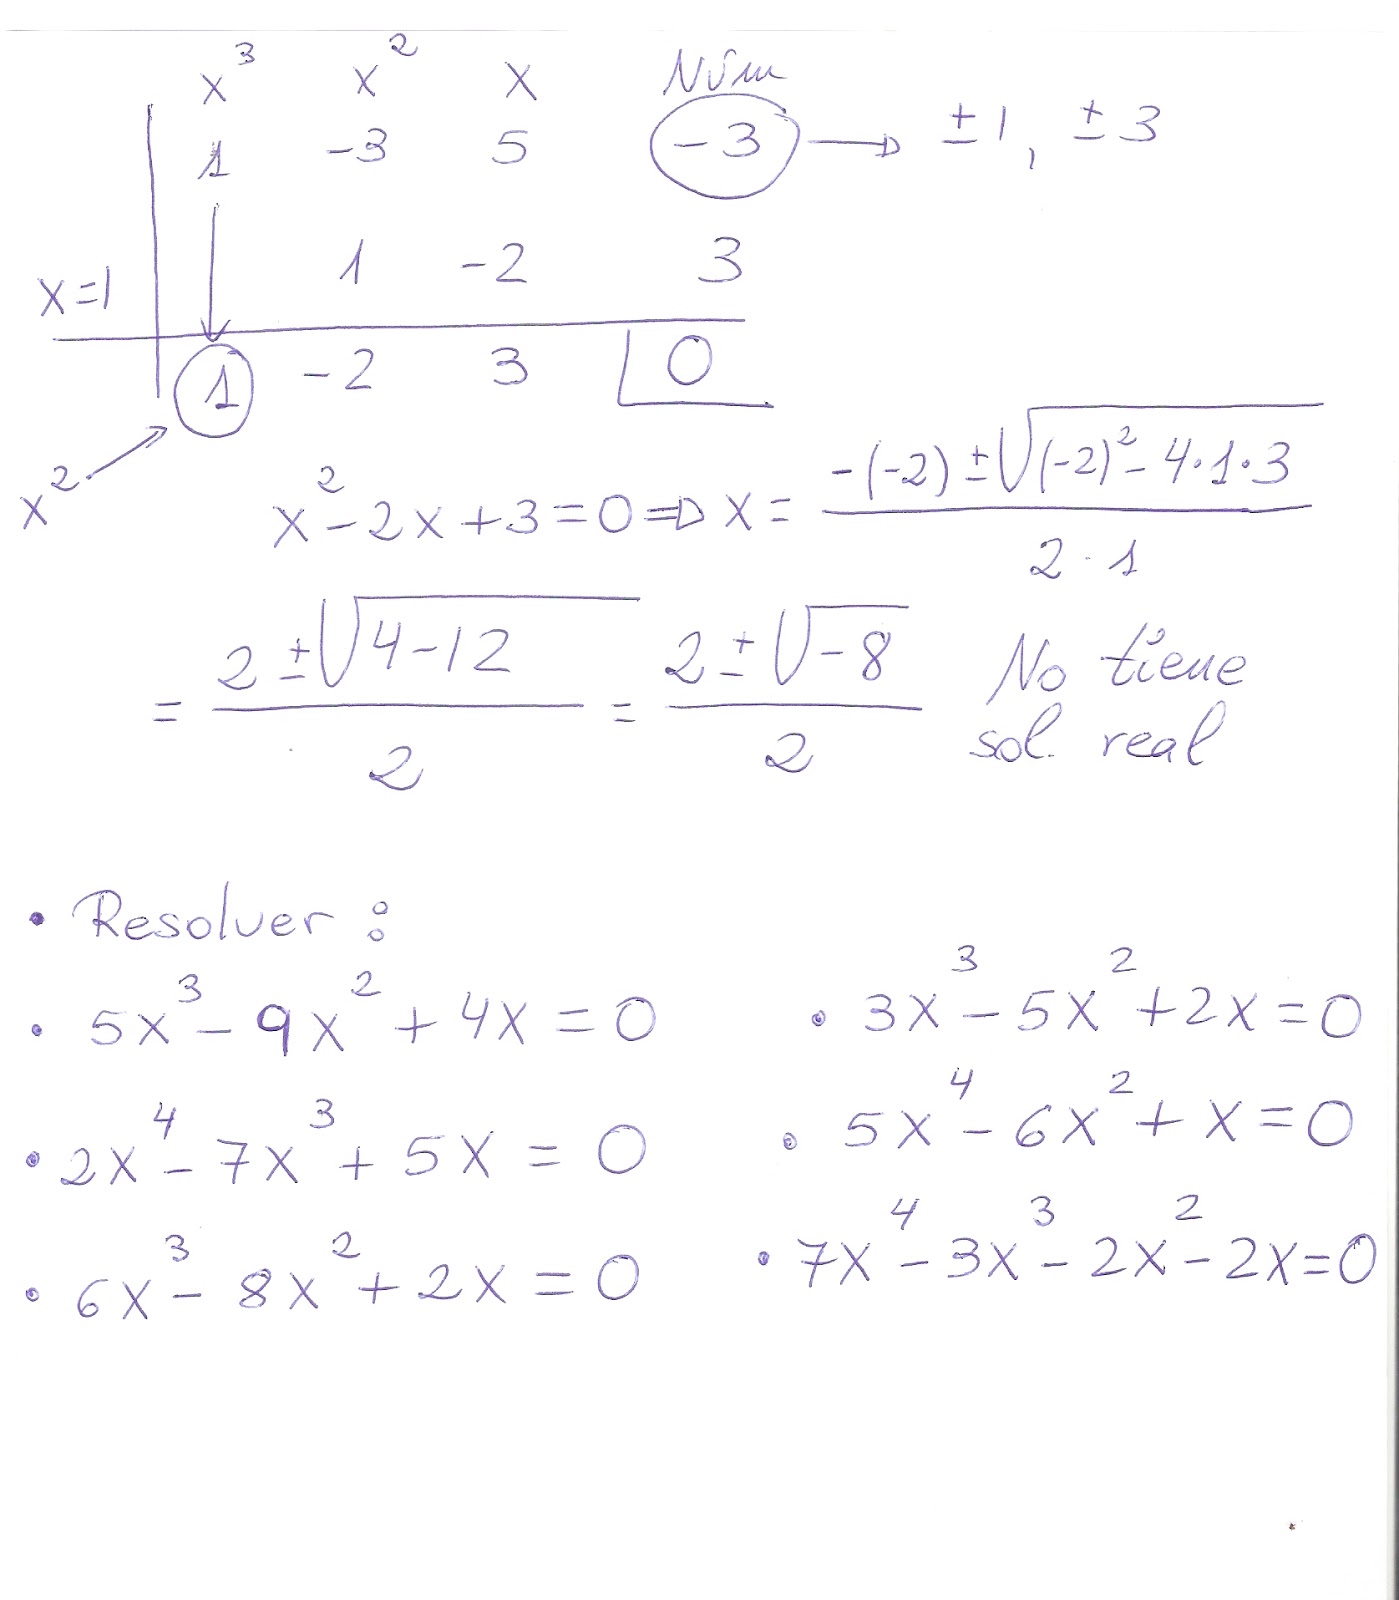 x³ x² x Núm
1 -3 5 -3 → ±1, ±3
x=1 1 -2 3
1 -2 3 0
x²
x²-2x+3=0 ⇒ x = (-(-2)±√((-2)²-4·1·3))/(2·1)
= (2±√(4-12))/2 = (2±√(-8))/2 No tiene
sol. real
• Resolver:
• 5x³-9x²+4x=0
• 3x³-5x²+2x=0
• 2x⁴-7x³+5x=0
• 5x⁴-6x²+x=0
• 6x³-8x²+2x=0
• 7x⁴-3x³-2x²-2x=0